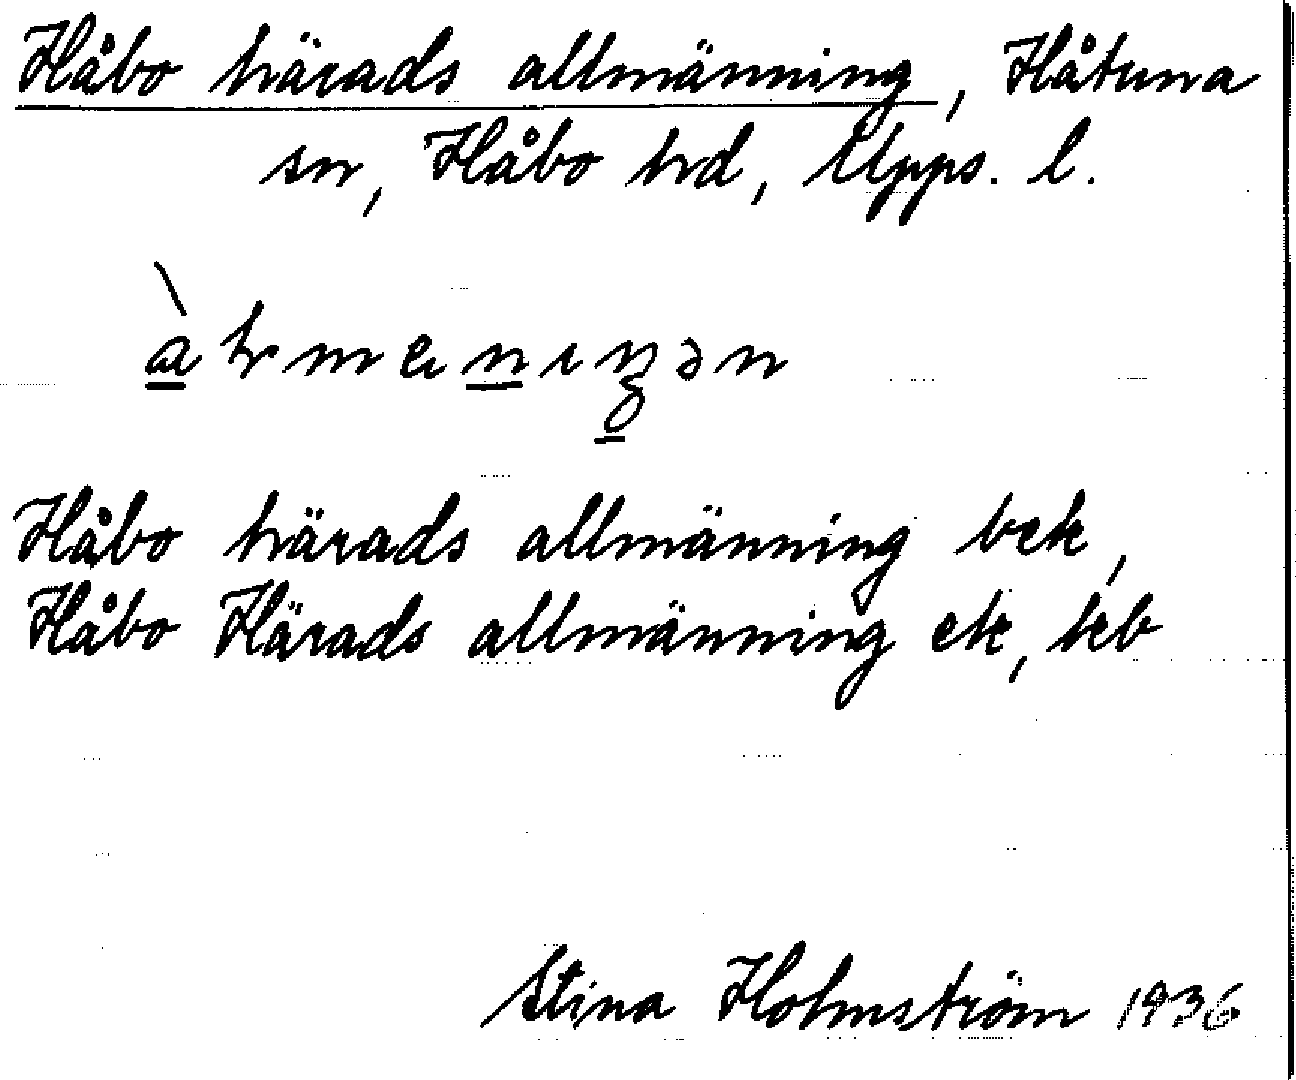 Håbo härads allmänning, Håtuna
sn, Håbo hd, Upps. l.
Håbo härads allmänning bek,
Håbo Härads allmänning ek, keb
Stina Holmström 1936